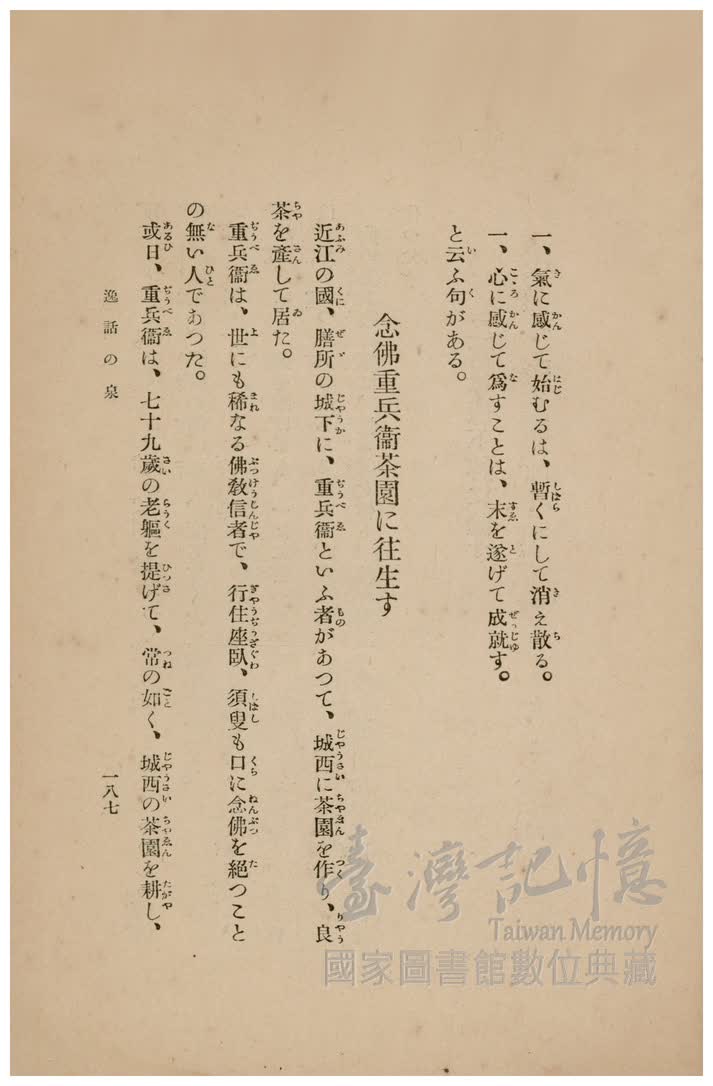 一、氣に感じて始むるは、暫くにして消え散る。
一、心に感じて爲すことは、末を遂げて成就す。
と云ふ句がある。
念佛重兵衞茶園に往生す
近江の國、膳所の城下に、重兵衞といふ者があつて、城西に茶園を作り、良
茶を產して居た。
重兵衞は、世にも稀なる佛敎信者で、行住座臥、須臾も口に念佛を絕つこと
の無い人であつた。
或日、重兵衞は、七十九歲の老軀を提げて、常の如く、城西の茶園を耕し、
逸話の泉
一八七
臺灣記憶
Taiwan Memory
國家圖書館數位典藏